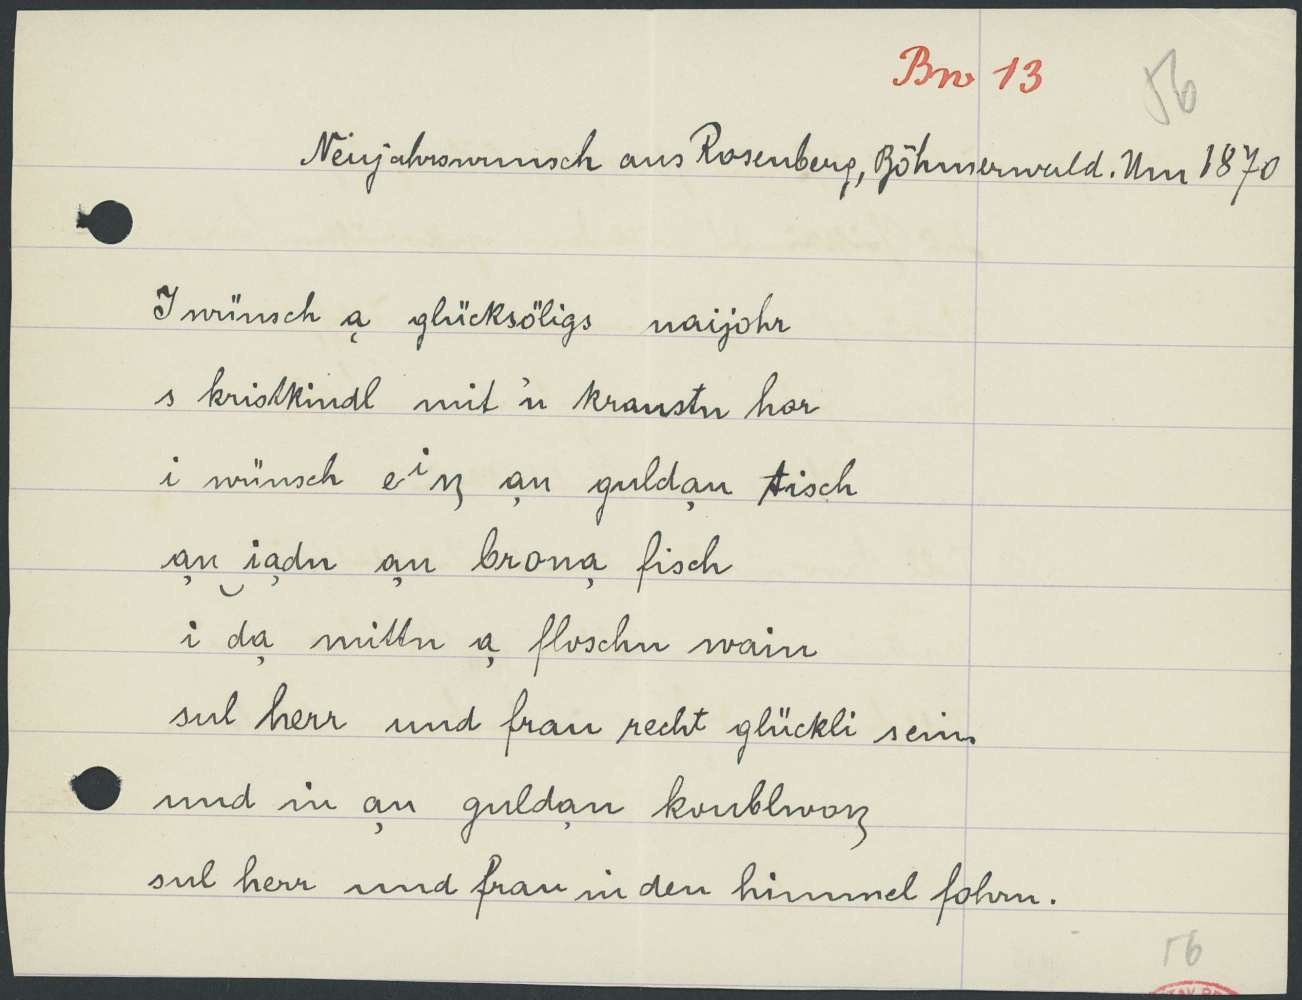 Bw 13
56
Neujahrswunsch aus Rosenberg, Böhmerwald. Um 1870
I wünsch ą glücksöligs naijohr
s kristkindl mit 'n kraustn hor
i wünsch eⁱᶇ ąn guldąn tisch
ąn iądn ąn broną fisch
i dą mittn ą floschn wain
sul herr und frau recht glückli sein
und in ąn guldąn koublwoᶇ
sul herr und frau in den himmel fohrn.
56